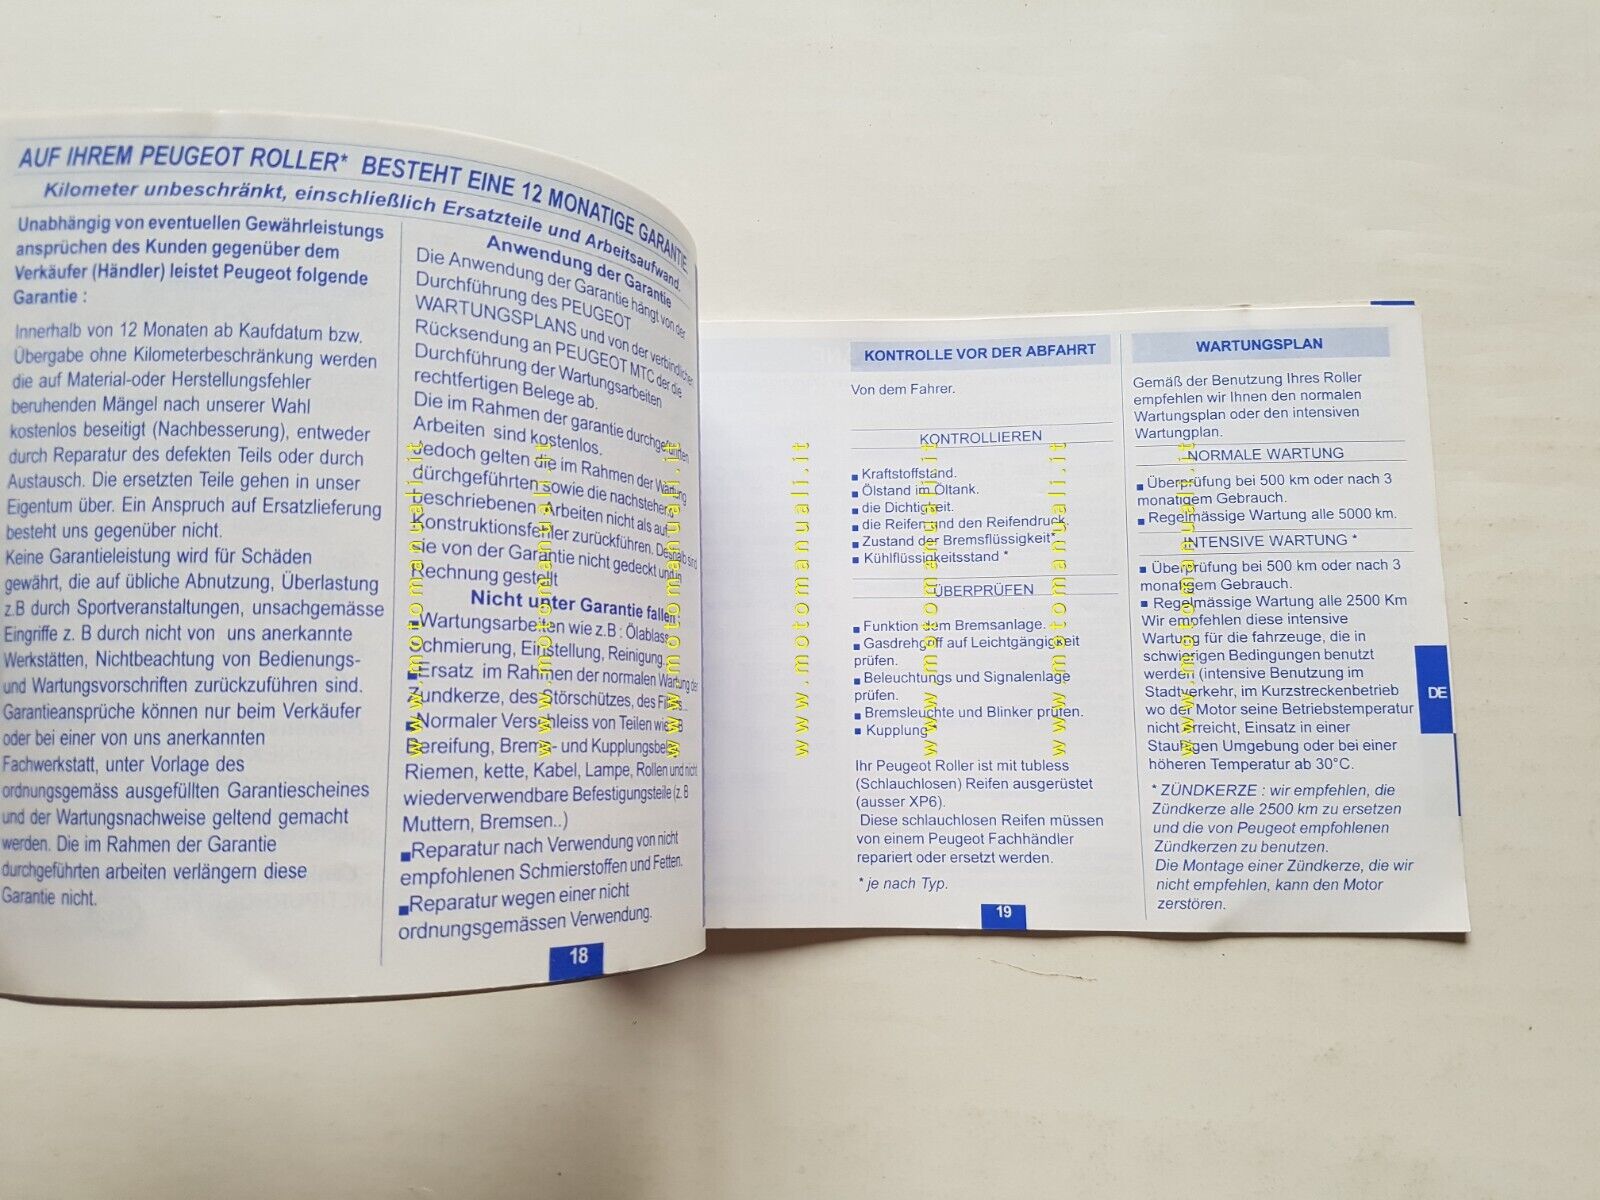 AUF IHREM PEUGEOT ROLLER* BESTEHT EINE 12 MONATIGE GARANTIE
Kilometer unbeschränkt, einschließlich Ersatzteile und Arbeitsaufwand.
Unabhängig von eventuellen Gewährleistungs
ansprüchen des Kunden gegenüber dem
Verkäufer (Händler) leistet Peugeot folgende
Garantie :
Innerhalb von 12 Monaten ab Kaufdatum bzw.
Übergabe ohne Kilometerbeschränkung werden
die auf Material-oder Herstellungsfehler
beruhenden Mängel nach unserer Wahl
kostenlos beseitigt (Nachbesserung), entweder
durch Reparatur des defekten Teils oder durch
Austausch. Die ersetzten Teile gehen in unser
Eigentum über. Ein Anspruch auf Ersatzlieferung
besteht uns gegenüber nicht.
Keine Garantieleistung wird für Schäden
gewährt, die auf übliche Abnutzung, Überlastung
z.B durch Sportveranstaltungen, unsachgemässe
Eingriffe z. B durch nicht von uns anerkannte
Werkstätten, Nichtbeachtung von Bedienungs-
und Wartungsvorschriften zurückzuführen sind.
Garantieansprüche können nur beim Verkäufer
oder bei einer von uns anerkannten
Fachwerkstatt, unter Vorlage des
ordnungsgemäss ausgefüllten Garantiescheines
und der Wartungsnachweise geltend gemacht
werden. Die im Rahmen der Garantie
durchgeführten arbeiten verlängern diese
Garantie nicht.
Anwendung der Garantie
Die Anwendung der Garantie hängt von der
Durchführung des PEUGEOT
WARTUNGSPLANS und von der verbindlichen
Rücksendung an PEUGEOT MTC der die
Durchführung der Wartungsarbeiten
rechtfertigen Belege ab.
Die im Rahmen der garantie durchgeführten
Arbeiten sind kostenlos.
Jedoch gelten die im Rahmen der Wartung
durchgeführten sowie die nachstehend
beschriebenen Arbeiten nicht als auf
Konstruktionsfehler zurückführen. Deshalb sind
sie von der Garantie nicht gedeckt und in
Rechnung gestellt
Nicht unter Garantie fallen :
■Wartungsarbeiten wie z.B : Ölablass,
Schmierung, Einstellung, Reinigung...
■Ersatz im Rahmen der normalen Wartung der
Zündkerze, des Störschützes, des Filters...
■Normaler Verschleiss von Teilen wie z.B
Bereifung, Brems- und Kupplungsbelag
Riemen, kette, Kabel, Lampe, Rollen und nicht
wiederverwendbare Befestigungsteile (z. B
Muttern, Bremsen..)
■Reparatur nach Verwendung von nicht
empfohlenen Schmierstoffen und Fetten.
■Reparatur wegen einer nicht
ordnungsgemässen Verwendung.
18
KONTROLLE VOR DER ABFAHRT
Von dem Fahrer.
KONTROLLIEREN
■ Kraftstoffstand.
■ Ölstand im Öltank.
■ die Dichtigkeit.
■ die Reifen und den Reifendruck.
■ Zustand der Bremsflüssigkeit*
■ Kühlflüssigkeitsstand *
ÜBERPRÜFEN
■ Funktion dem Bremsanlage.
■ Gasdrehgoff auf Leichtgängigkeit
prüfen.
■ Beleuchtungs und Signalenlage
prüfen.
■ Bremsleuchte und Blinker prüfen.
■ Kupplung
Ihr Peugeot Roller ist mit tubless
(Schlauchlosen) Reifen ausgerüstet
(ausser XP6).
Diese schlauchlosen Reifen müssen
von einem Peugeot Fachhändler
repariert oder ersetzt werden.
* je nach Typ.
19
WARTUNGSPLAN
Gemäß der Benutzung Ihres Roller
empfehlen wir Ihnen den normalen
Wartungsplan oder den intensiven
Wartungplan.
NORMALE WARTUNG
■ Überprüfung bei 500 km oder nach 3
monatigem Gebrauch.
■ Regelmässige Wartung alle 5000 km.
INTENSIVE WARTUNG *
■ Überprüfung bei 500 km oder nach 3
monatigem Gebrauch.
■ Regelmässige Wartung alle 2500 Km
Wir empfehlen diese intensive
Wartung für die fahrzeuge, die in
schwierigen Bedingungen benutzt
werden (intensive Benutzung im
Stadtverkehr, im Kurzstreckenbetrieb
wo der Motor seine Betriebstemperatur
nicht erreicht, Einsatz in einer
Staubigen Umgebung oder bei einer
höheren Temperatur ab 30°C.
* ZÜNDKERZE : wir empfehlen, die
Zündkerze alle 2500 km zu ersetzen
und die von Peugeot empfohlenen
Zündkerzen zu benutzen.
Die Montage einer Zündkerze, die wir
nicht empfehlen, kann den Motor
zerstören.
DE
www.motomanuali.it
www.motomanuali.it
www.motomanuali.it
www.motomanuali.it
www.motomanuali.it
www.motomanuali.it
www.motomanuali.it